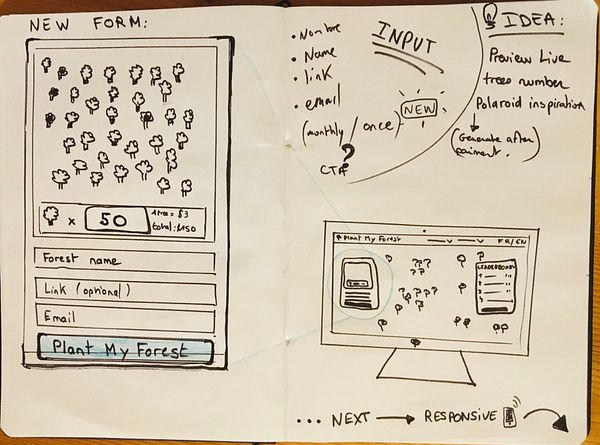 NEW FORM:
x 50
1 tree = $3
total: $150
Forest name
Link (optional)
Email
Plant My Forest
• Nombre
• Name
• link
• email
(monthly / once)
?
CTA
INPUT
NEW
IDEA:
Preview Live
trees number
Polaroid inspiration
(Generate after
paiment.)
Plant My Forest
FR/EN
LEADERBOARD
... NEXT → RESPONSIVE